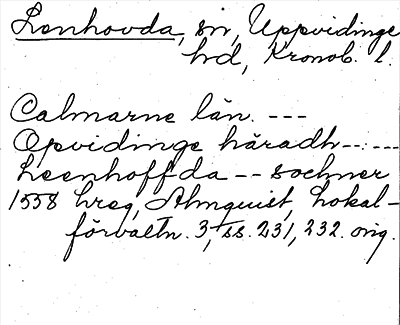 Lenhovda, sn, Uppvidinge
hd, Kronob. l.
Calmarne län. ---
Opvidinge häradh -- ---
Leenhoffda -- sochner
1558 hreg, Almquist, Lokal-
förvaltn. 3, ss. 231, 232. orig.